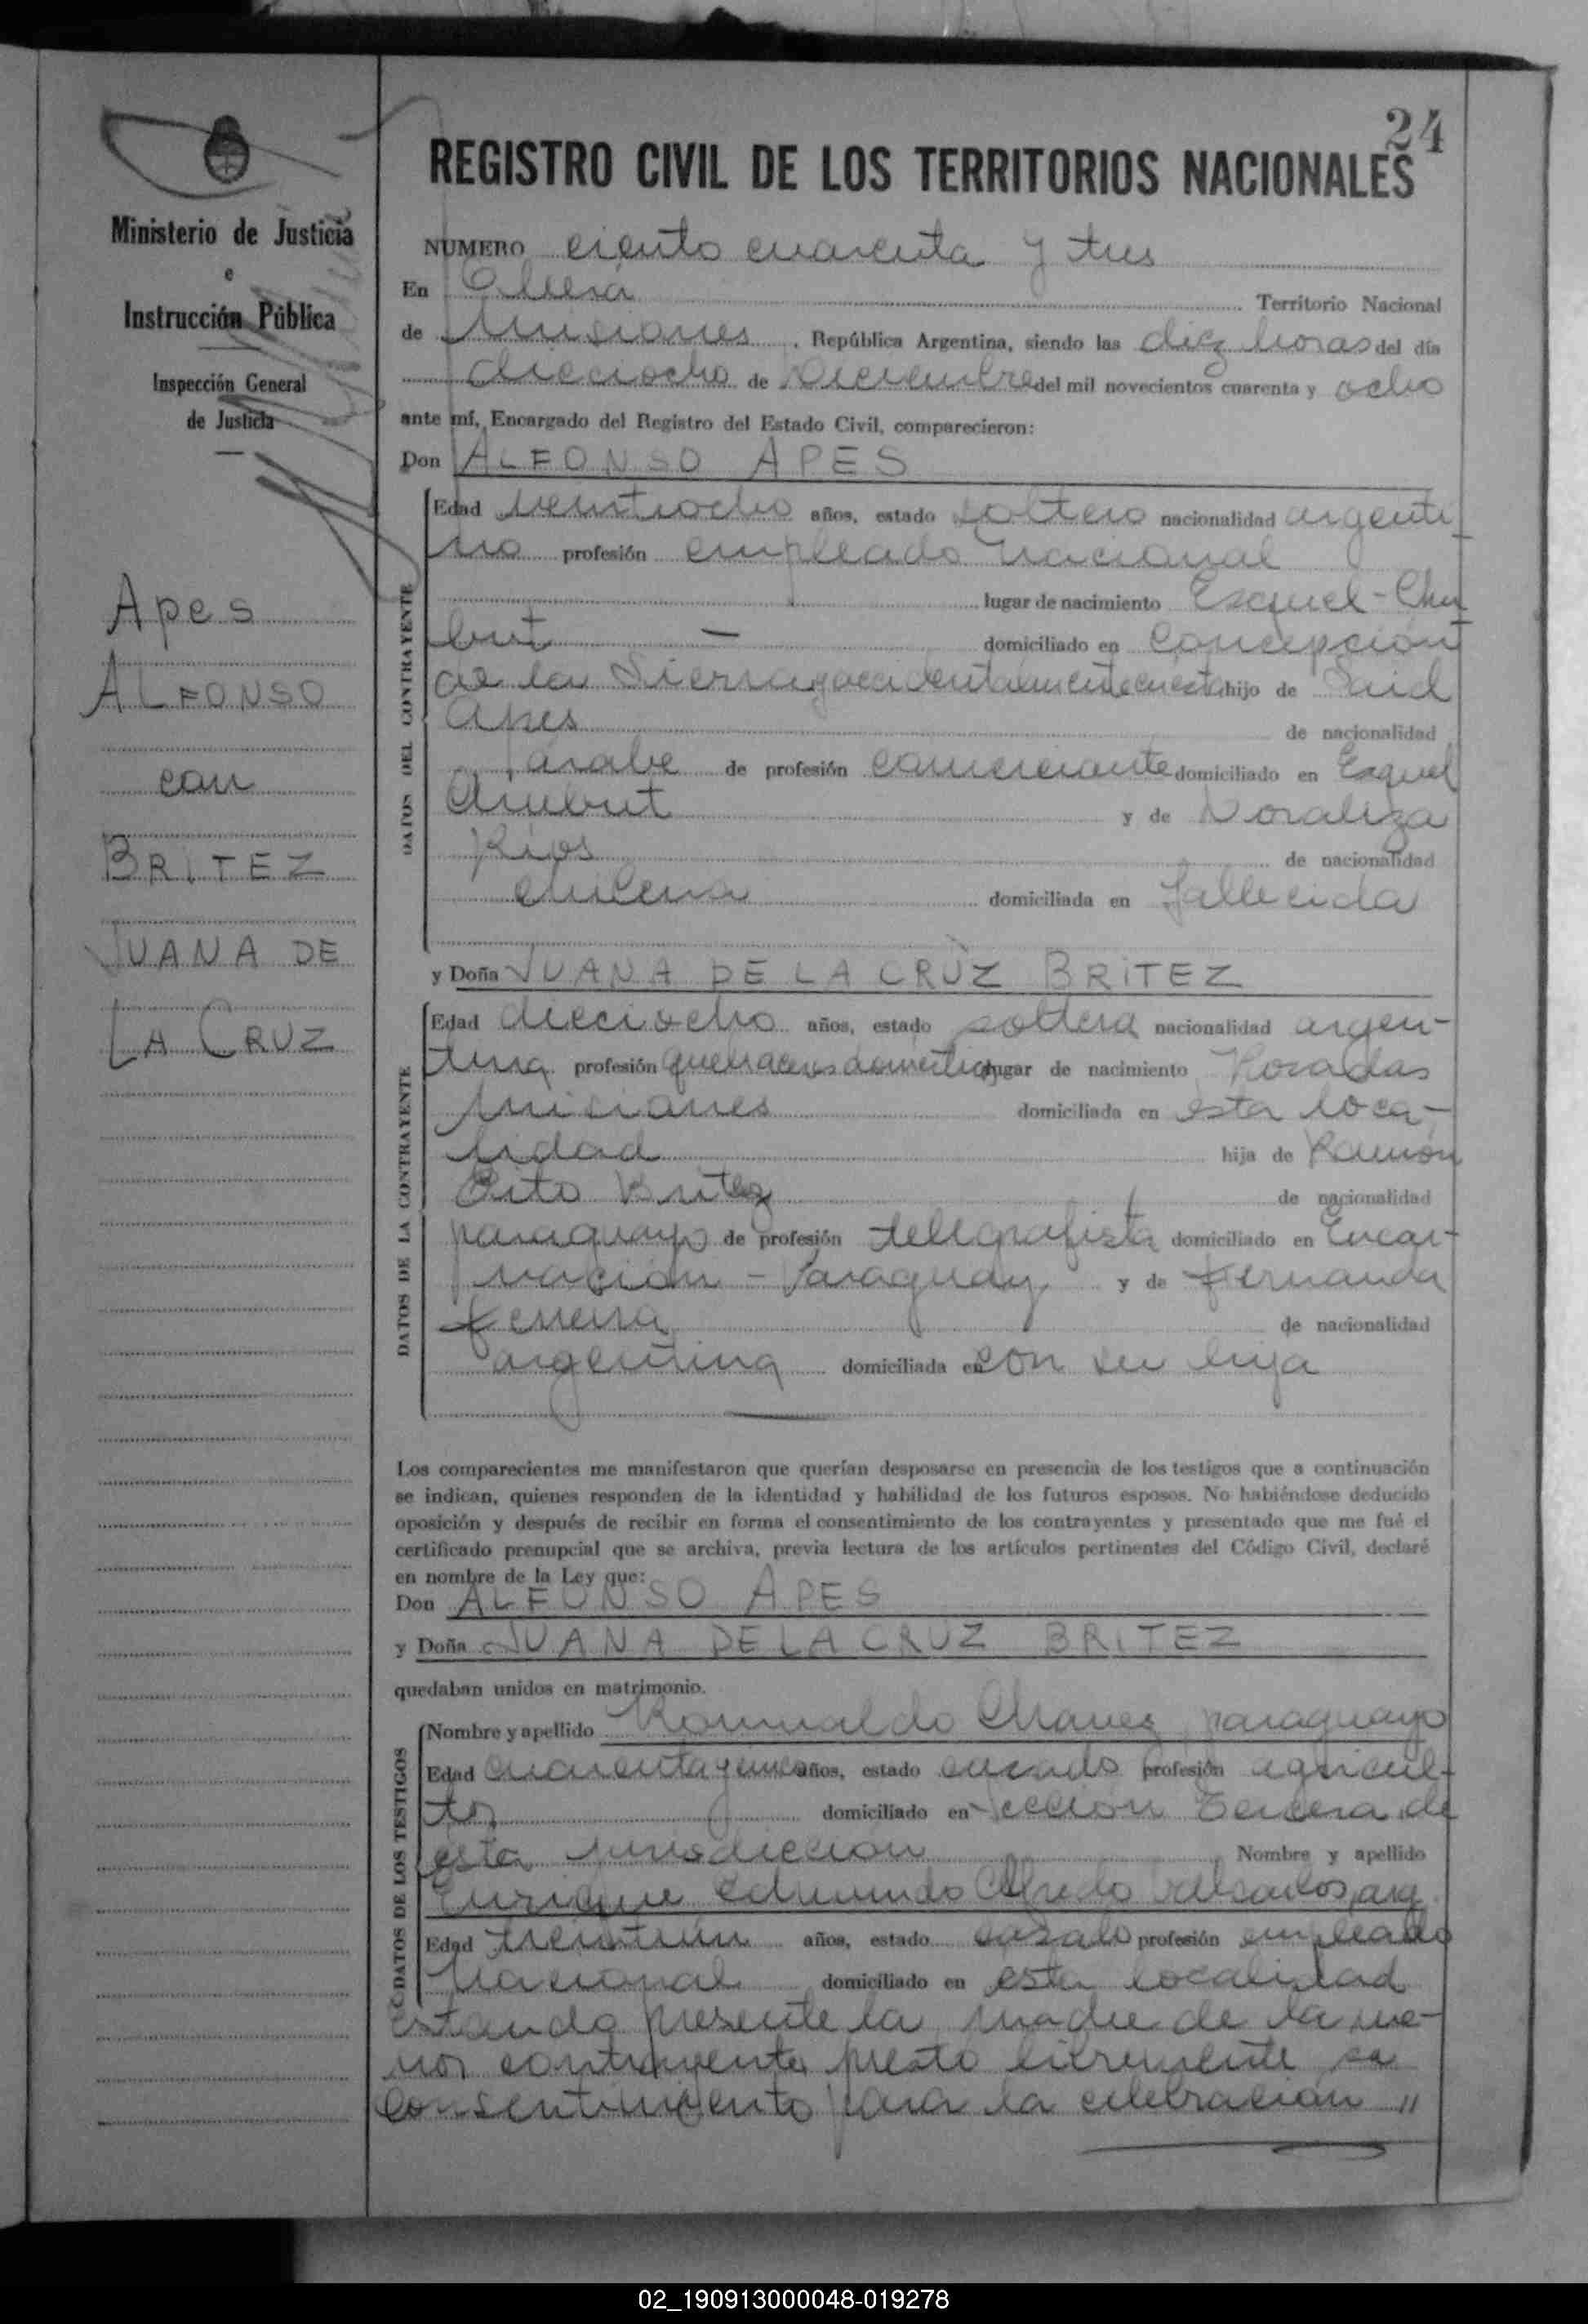 24
REGISTRO CIVIL DE LOS TERRITORIOS NACIONALES
Ministerio de Justicia
e
Instrucción Pública
Inspección General
de Justicia
Apes
ALFONSO
con
BRITEZ
JUANA DE
LA CRUZ
NUMERO ciento cuarenta y tres
En Oberá Territorio Nacional
de Misiones, República Argentina, siendo las diez horas del día
dieciocho de Diciembre del mil novecientos cuarenta y ocho
ante mí, Encargado del Registro del Estado Civil, comparecieron:
Don ALFONSO APES
DATOS DEL CONTRAYENTE
Edad veintiocho años, estado soltero nacionalidad argenti
no profesión empleado nacional
lugar de nacimiento Esquel - Chu
but — domiciliado en Concepción
de la Sierra y accidentalmente en esta hijo de Said
Apes de nacionalidad
árabe de profesión comerciante domiciliado en Esquel
Chubut y de Doraliza
Rios de nacionalidad
chilena domiciliada en fallecida
y Doña JUANA DE LA CRUZ BRITEZ
DATOS DE LA CONTRAYENTE
Edad dieciocho años, estado soltera nacionalidad argen-
tina profesión quehaceres domésticos lugar de nacimiento Posadas
Misiones domiciliada en esta loca-
lidad hija de Ramón
Brito Britez de nacionalidad
paraguayo de profesión telegrafista domiciliado en Encar-
nación - Paraguay y de Fernanda
Ferreira de nacionalidad
argentina domiciliada en con su hija
Los comparecientes me manifestaron que querían desposarse en presencia de los testigos que a continuación
se indican, quienes responden de la identidad y habilidad de los futuros esposos. No habiéndose deducido
oposición y después de recibir en forma el consentimiento de los contrayentes y presentado que me fué el
certificado prenupcial que se archiva, previa lectura de los artículos pertinentes del Código Civil, declaré
en nombre de la Ley que:
Don ALFONSO APES
y Doña JUANA DE LA CRUZ BRITEZ
quedaban unidos en matrimonio.
DATOS DE LOS TESTIGOS
Nombre y apellido Romualdo Chavez, paraguayo
Edad cuarenta y cinco años, estado casado profesión agricul-
tor domiciliado en Sección Tercera de
esta jurisdicción Nombre y apellido
Enrique Edmundo Alfredo arg.
Edad treintiún años, estado casado profesión empleado
Nacional domiciliado en esta localidad
Estando presente la madre de la me-
nor contrayente, prestó libremente su
consentimiento para la celebración "
02_190913000048-019278